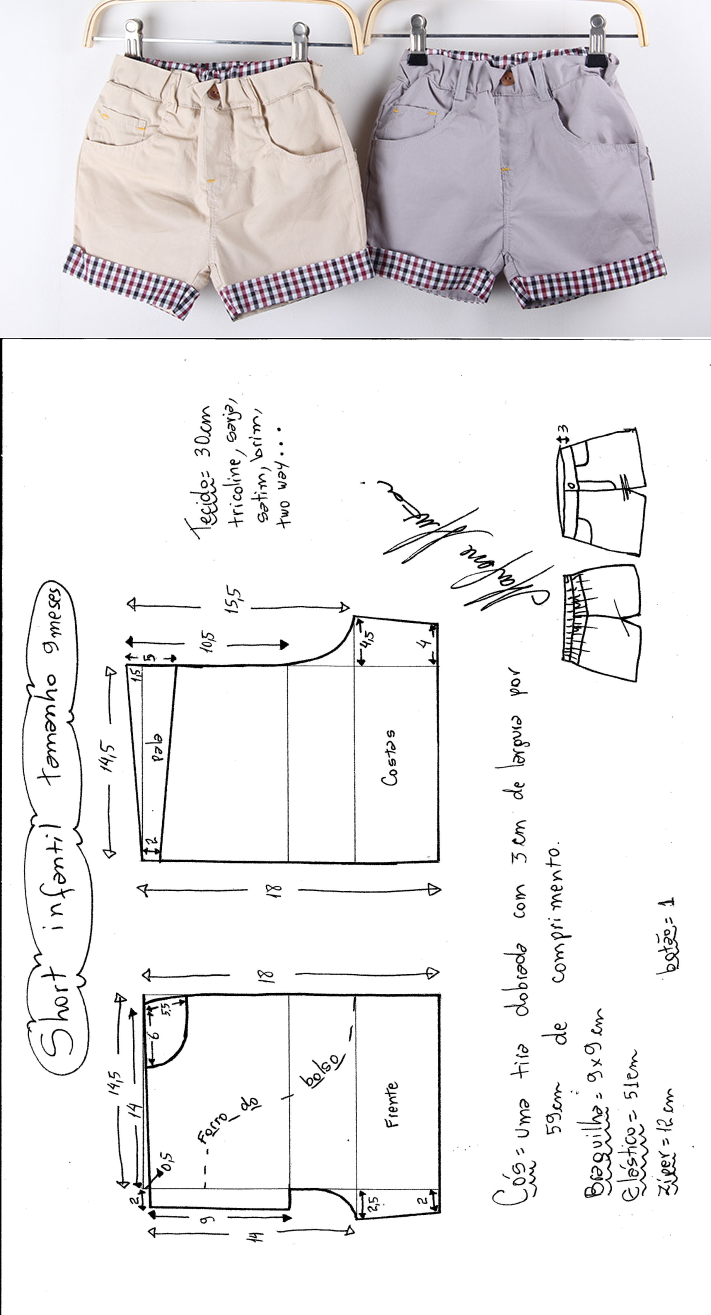 Short infantil tamanho 9 meses
Tecido = 30cm
tricoline, sarja,
satim, brim,
two way...
3
14,5
14
0,5
2
9
14
6
5,5
18
Forro do bolso
Frente
2,5
2
14,5
1,5
5
10,5
15,5
pala
2
18
Costas
4,5
4
Cós = Uma tira dobrada com 3 cm de largura por
59cm de comprimento.
Braguilha = 9x9 cm
Elástico = 51cm
Zíper = 12 cm
botão = 1